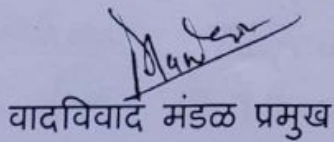 वादविवाद मंडळ प्रमुख